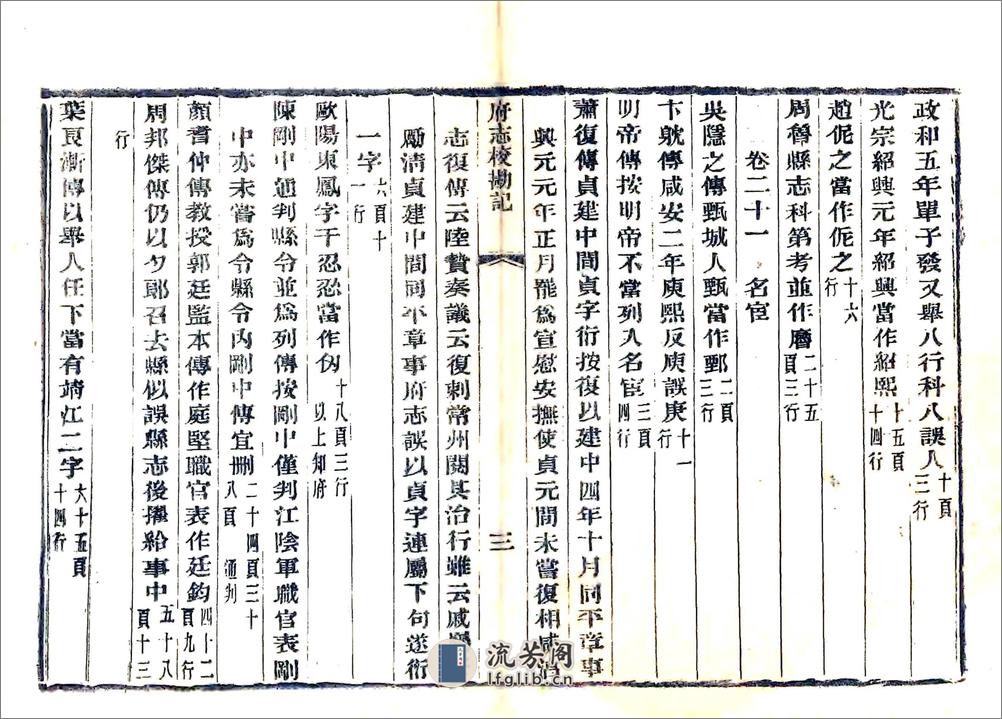 政和五年單子發又舉八行科八誤人十頁三行
光宗紹興元年紹興當作紹熙十五頁十四行
趙伲之當作伲之十六行
周魯縣志科第考並作曆二十五頁三行
卷二十一 名宦
吳隱之傳甄城人甄當作鄄二頁三行
卞虨傳咸安二年庾熙反庾誤庚十一行
明帝傳按明帝不當列入名宦三頁四行
蕭復傳貞建中間貞字衍按復以建中四年十月同平章事
興元元年正月罷爲宣慰安撫使貞元間未嘗復相咸淳
府志校勘記
三
志復傳云陸贄奏議云復刺常州閱其治行雖云戚屬
勵清貞建中間同平章事府志誤以貞字連屬下句遂衍
一字六頁十一行
歐陽東鳳字千忍忍當作仞十八頁三行以上知府
陳剛中通判縣令並爲列傳按剛中僅判江陰軍職官表剛
中亦未嘗爲令縣令內剛中傳宜刪二十四頁三十八頁通判
顏耆仲傳教授郭廷監本傳作庭堅職官表作廷鈞四十二頁九行
周邦傑傳仍以夕郎召去縣似誤縣志後擢給事中五十八頁十三
行
葉良漸傳以舉人任下當有靖江二字六十五頁十四行
流芳閣
lfglib.cn